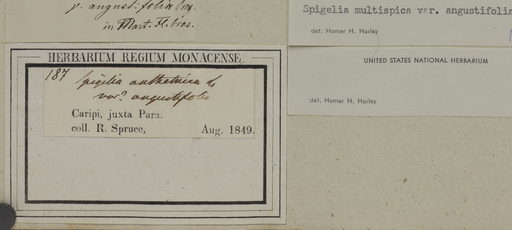 γ. angustifolia
in Mart. Fl. bras.
HERBARIUM REGIUM MONACENSE.
187 Spigelia anthelmia L
var? angustifolia
Caripi, juxta Para.
coll. R. Spruce, Aug. 1849.
Spigelia multispica var. angustifolia
det. Homer H. Hurley
UNITED STATES NATIONAL HERBARIUM
det. Homer H. Hurley